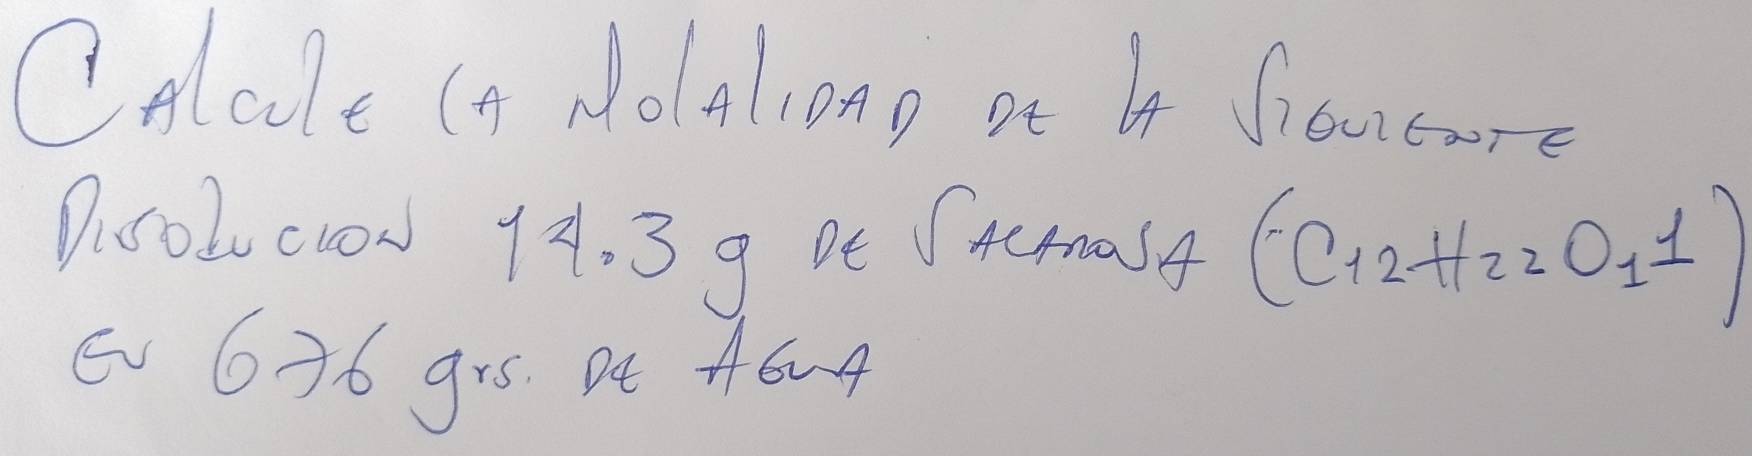 CAlculE lA MolAliDAD DE lA SiGuiENTE
DisoluciON 14.3 g DE SACAROSA (C12H22O11)
EN 676 grs. DE AGUA